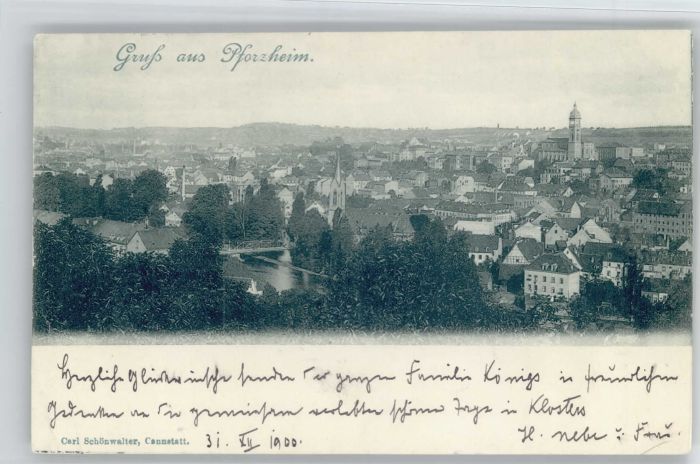 Gruß aus Pforzheim.
Herzliche Glückwünsche senden der ganzen Familie Königs in freundlichem
Gedenken an die gemeinsam verlebten schönen Tage in Klosters
Carl Schönwalter, Cannstatt. 31. XII 1900. H. u. Frau.